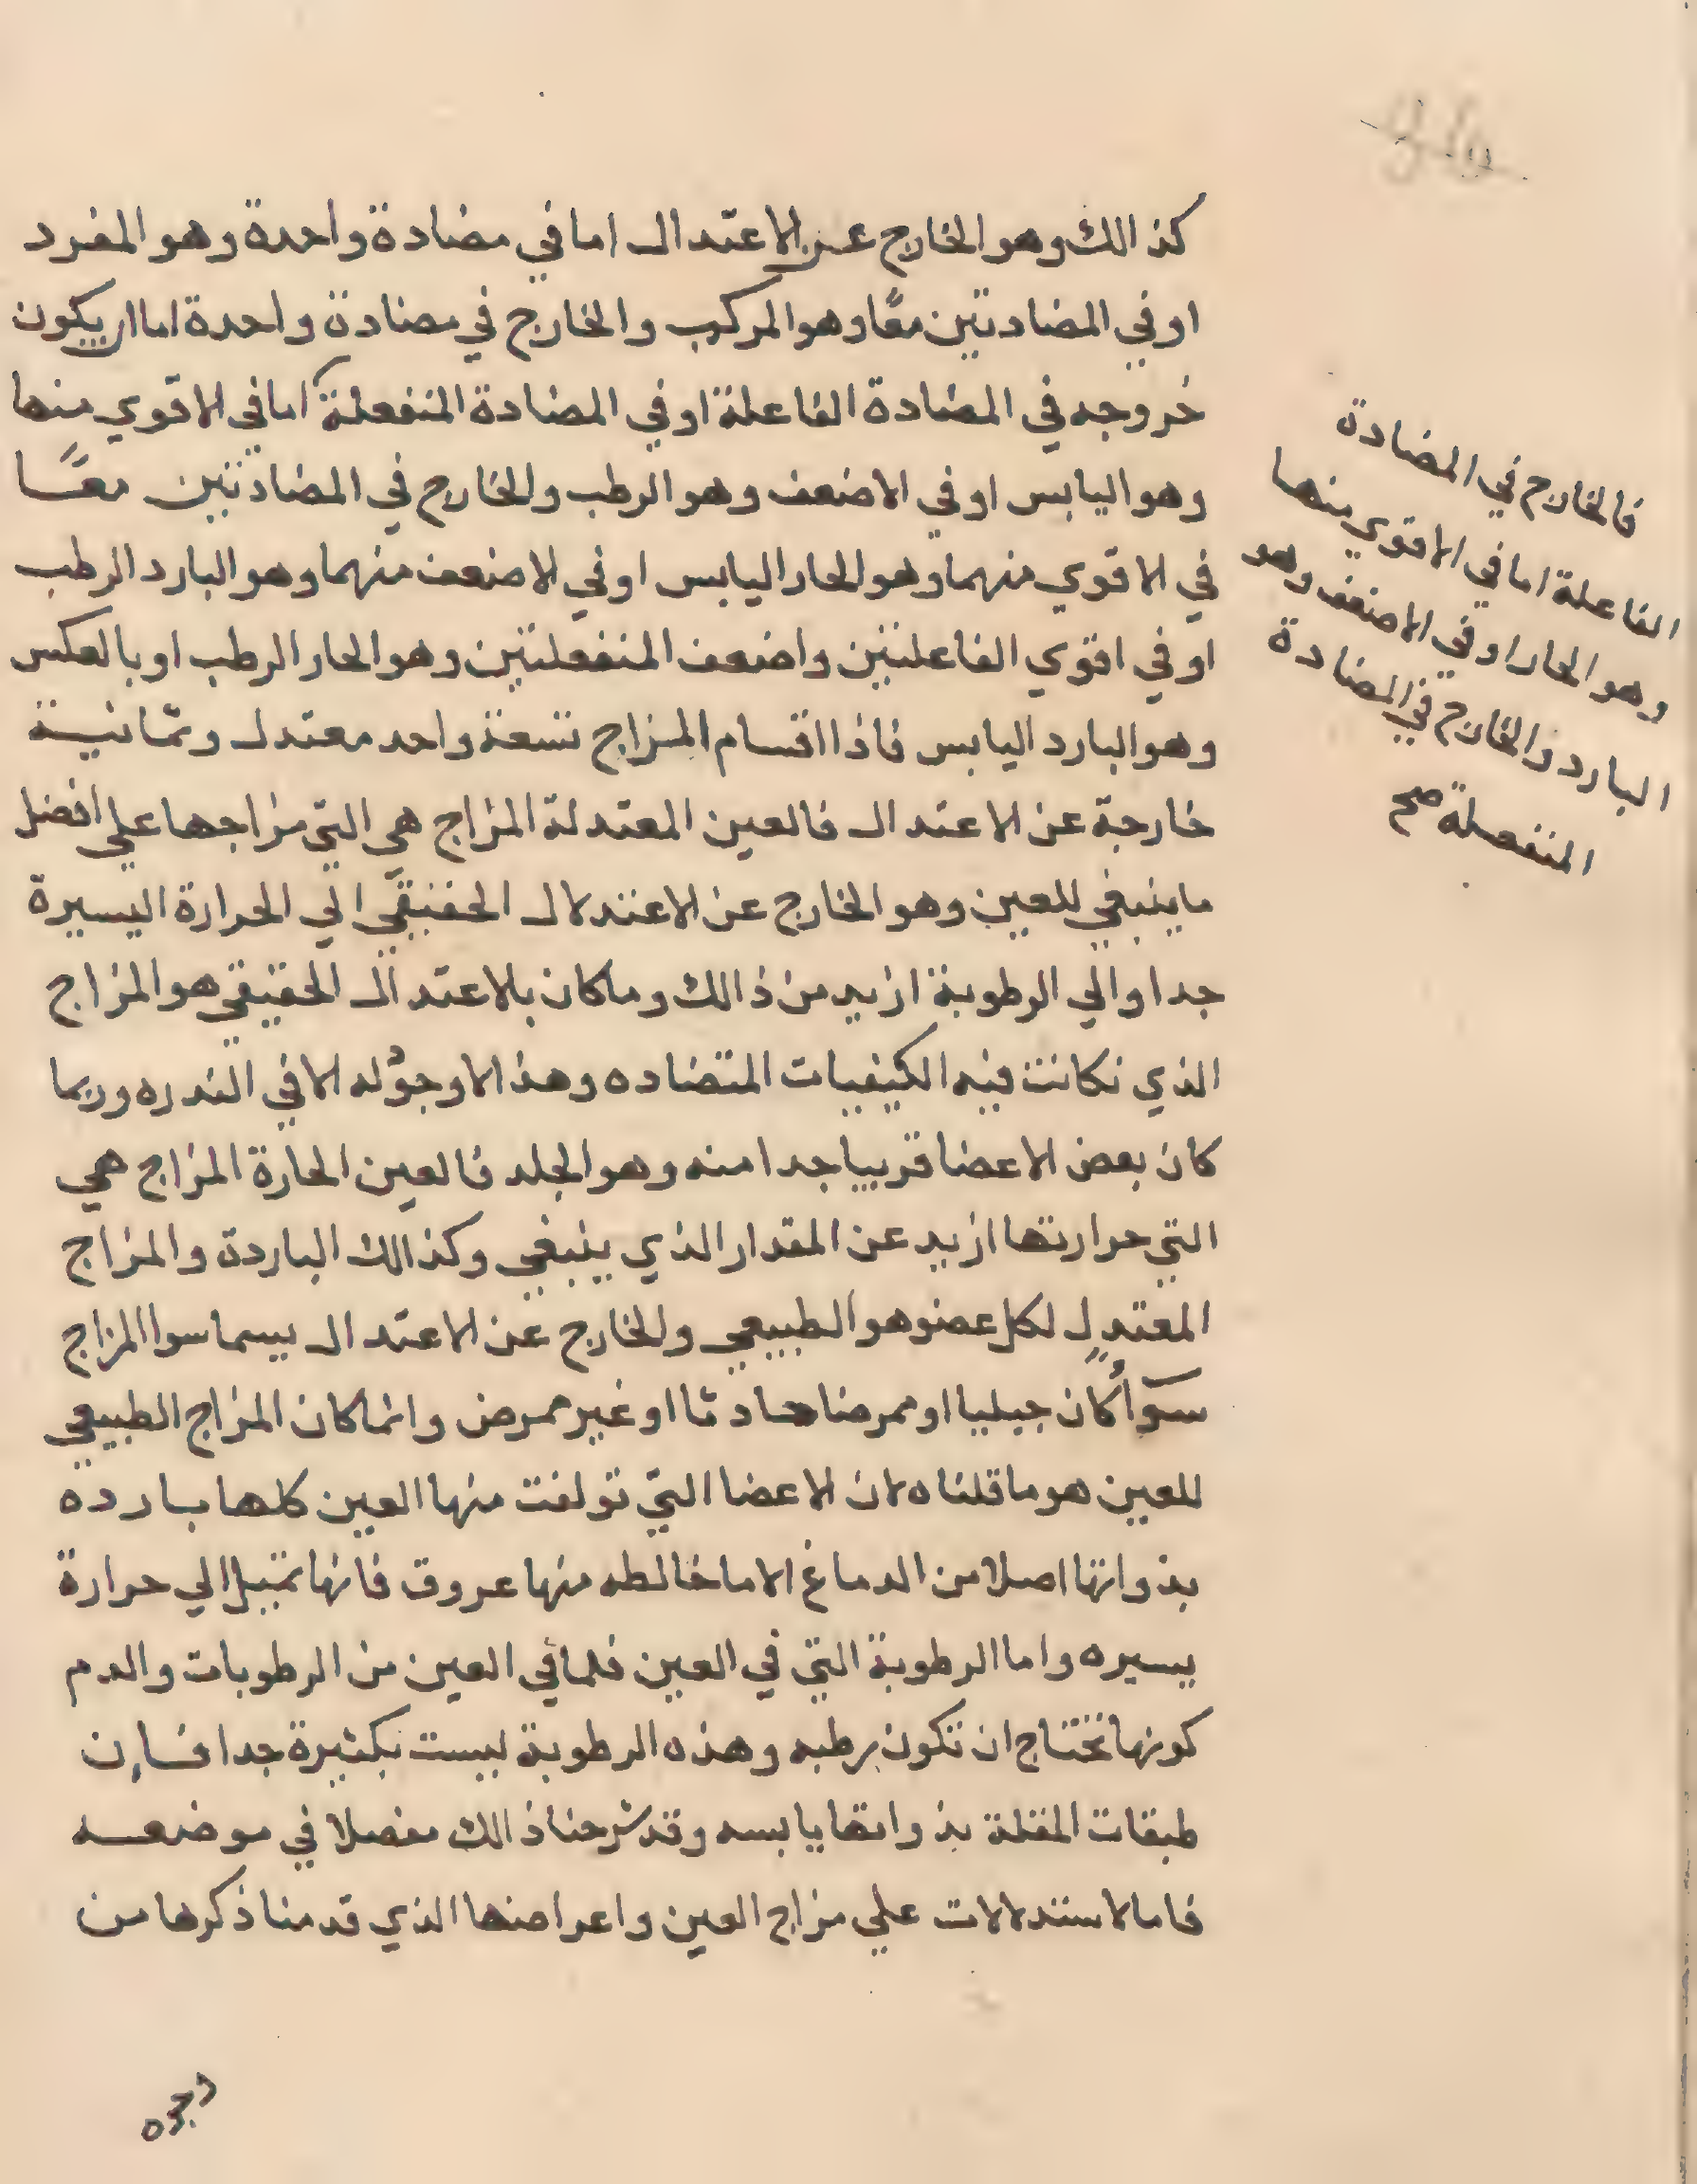 كذالك وهو الخارج عن الاعتدال اما في مضادة واحدة وهو المفرد
او في المضادتين معًا وهو المركب والخارج في مضادة واحدة اما ان يكون
خروجه في المضادة الفاعلة او في المضادة المنفعلة اما في الاقوي منها
وهو اليابس او في الاضعف وهو الرطب والخارج في المضادتين معًا
في الاقوي منهما وهو الحار اليابس او في الاضعف منهما وهو البارد الرطب
او في اقوي الفاعلتين واضعف المنفعلتين وهو الحار الرطب او بالعكس
وهو البارد اليابس فاذا اقسام المزاج تسعة واحد معتدل وثمانية
خارجة عن الاعتدال فالعين المعتدلة المزاج هي التي مزاجها علي افضل
ما ينبغي للعين وهو الخارج عن الاعتدلال الحقيقي الي الحرارة اليسيرة
جدا والي الرطوبة ازيد من ذالك وما كان بلاعتدال الحقيقي هو المزاج
الذي تكانت فيه الكيفيات المتضاده وهذا لا وجود له الا في الندره وربما
كان بعض الاعضا قريبا جدا منه وهو الجلد فالعين الحارة المزاج هي
التي حرارتها ازيد عن المقدار الذي ينبغي وكذالك الباردة والمزاج
المعتدل لكل عضو هو الطبيعي والخارج عن الاعتدال يسما سوا المزاج
سوأ كان جبليا او ممرضا حادثا او غير ممرض وانما كان المزاج الطبيعي
للعين هو ما قلناه لان الاعضا التي تولفت منها العين كلها بارده
بذواتها اصلا من الدماغ الا ما خالطه منها عروق فانها تميل الي حرارة
يسيره واما الرطوبة التي في العين فلما في العين من الرطوبات والدم
كونها تحتاج ان تكون رطبه وهذه الرطوبة ليست بكثيرة جدا فان
طبقات المقلة بذواتها يابسه وقد شرحنا ذالك مفصلا في موضعه
فاما لاستدلالات علي مزاج العين واعراضها الذي قدمنا ذكرها من
فالخارج في المضادة
الفاعلة اما في الاقوي منها
وهو الحار او في الاضعف وهو
البارد والخارج في المضادة
المنفعلة صح
وجوه